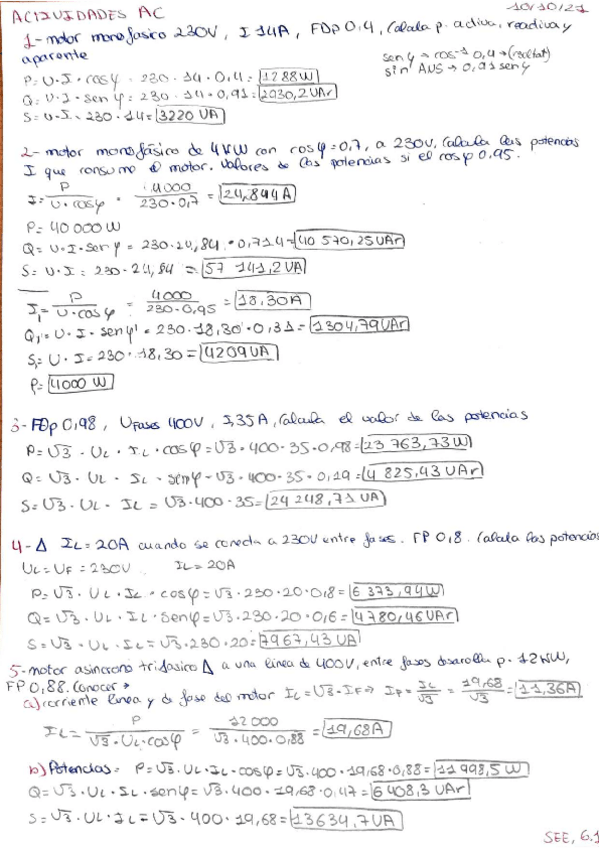 ACTIVIDADES AC 10/10/21
1- motor monofasico 230V, I 14A, FDp 0,4, Calcula p. activa, reactiva y
aparente
sen φ → cos⁻¹ 0,4 →
sin ANS → 0,91 sen φ
P= U·I·cosφ = 230·14·0,4 = 1288W
Q= U·I·sen φ = 230·14·0,91 = 2930,2 VAr
S= U·I = 230·14 = 3220 VA
2- motor monofásico de 4kW con cosφ=0,7, a 230V. Calcula las potencias
I que consume el motor. Valores de las potencias si el cosφ 0,95.
I= P / U·cosφ = 4000 / 230·0,7 = 24,844A
P= 40000 W
Q= U·I·sen φ = 230·24,84·0,714 = 40 570,25 VAr
S= U·I = 230·24,84 = 57 141,2 VA
I₁= P / U·cosφ = 4000 / 230·0,95 = 18,30A
Q₁= U·I·senφ' = 230·18,30·0,31 = 1304,79 VAr
S₁= U·I = 230·18,30 = 4209 VA
P= 4000 W
3- FDp 0,98, U fases 400V, I 35A, Calcula el valor de las potencias
P= √3·UL·IL·cosφ = √3·400·35·0,98 = 23 763,73 W
Q= √3·UL·IL·senφ = √3·400·35·0,19 = 4 825,43 VAr
S= √3·UL·IL = √3·400·35 = 24 248,71 VA
4- Δ IL = 20A cuando se conecta a 230V entre fases. FP 0,8. Calcula las potencias
UL= UF = 230V IL = 20A
P= √3·UL·IL·cosφ = √3·230·20·0,8 = 6 373,94 W
Q= √3·UL·IL·senφ = √3·230·20·0,6 = 4780,46 VAr
S= √3·UL·IL = √3·230·20 = 7967,43 VA
5- motor asincrono trifasico Δ a una linea de 400V, entre fases desarolla p. 12 kW,
FP 0,88. Conocer →
a) corriente linea y de fase del motor IL = √3·IF → IF = IL / √3 = 19,68 / √3 = 11,36A
IL = P / √3·UL·cosφ = 12000 / √3·400·0,88 = 19,68A
b) Potencias. P= √3·UL·IL·cosφ = √3·400·19,68·0,88 = 11 998,5 W
Q= √3·UL·IL·senφ = √3·400·19,68·0,47 = 6 408,3 VAr
S= √3·UL·IL = √3·400·19,68 = 13634,7 VA
SEE, 6.1